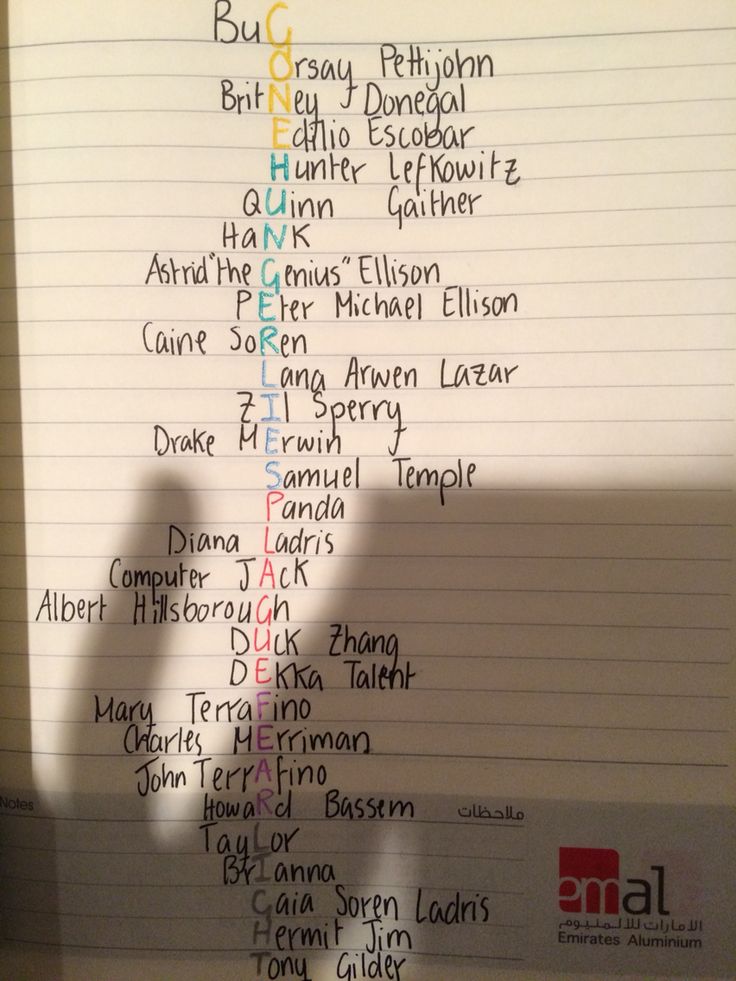 BuG
Orsay Pettijohn
BritNey Donegal
Edilio Escobar
Hunter Lefkowitz
QUinn Gaither
HaNK
Astrid "the Genius" Ellison
PEter Michael Ellison
Caine SoRen
Lana Arwen Lazar
ZIl Sperry
Drake MErwin
Samuel Temple
Panda
Diana Ladris
Computer JAcK
Albert HillsborouGh
DUcK Zhang
DEKKa Talent
Mary TerraFino
Charles MErriman
John TerrAfino
HowaRd Bassem
Notes
ملاحظات
TayLor
BrIanna
Gaia Soren Ladris
Hermit Jim
Tony Gilder
emal
الامارات للألمنيوم
Emirates Aluminium